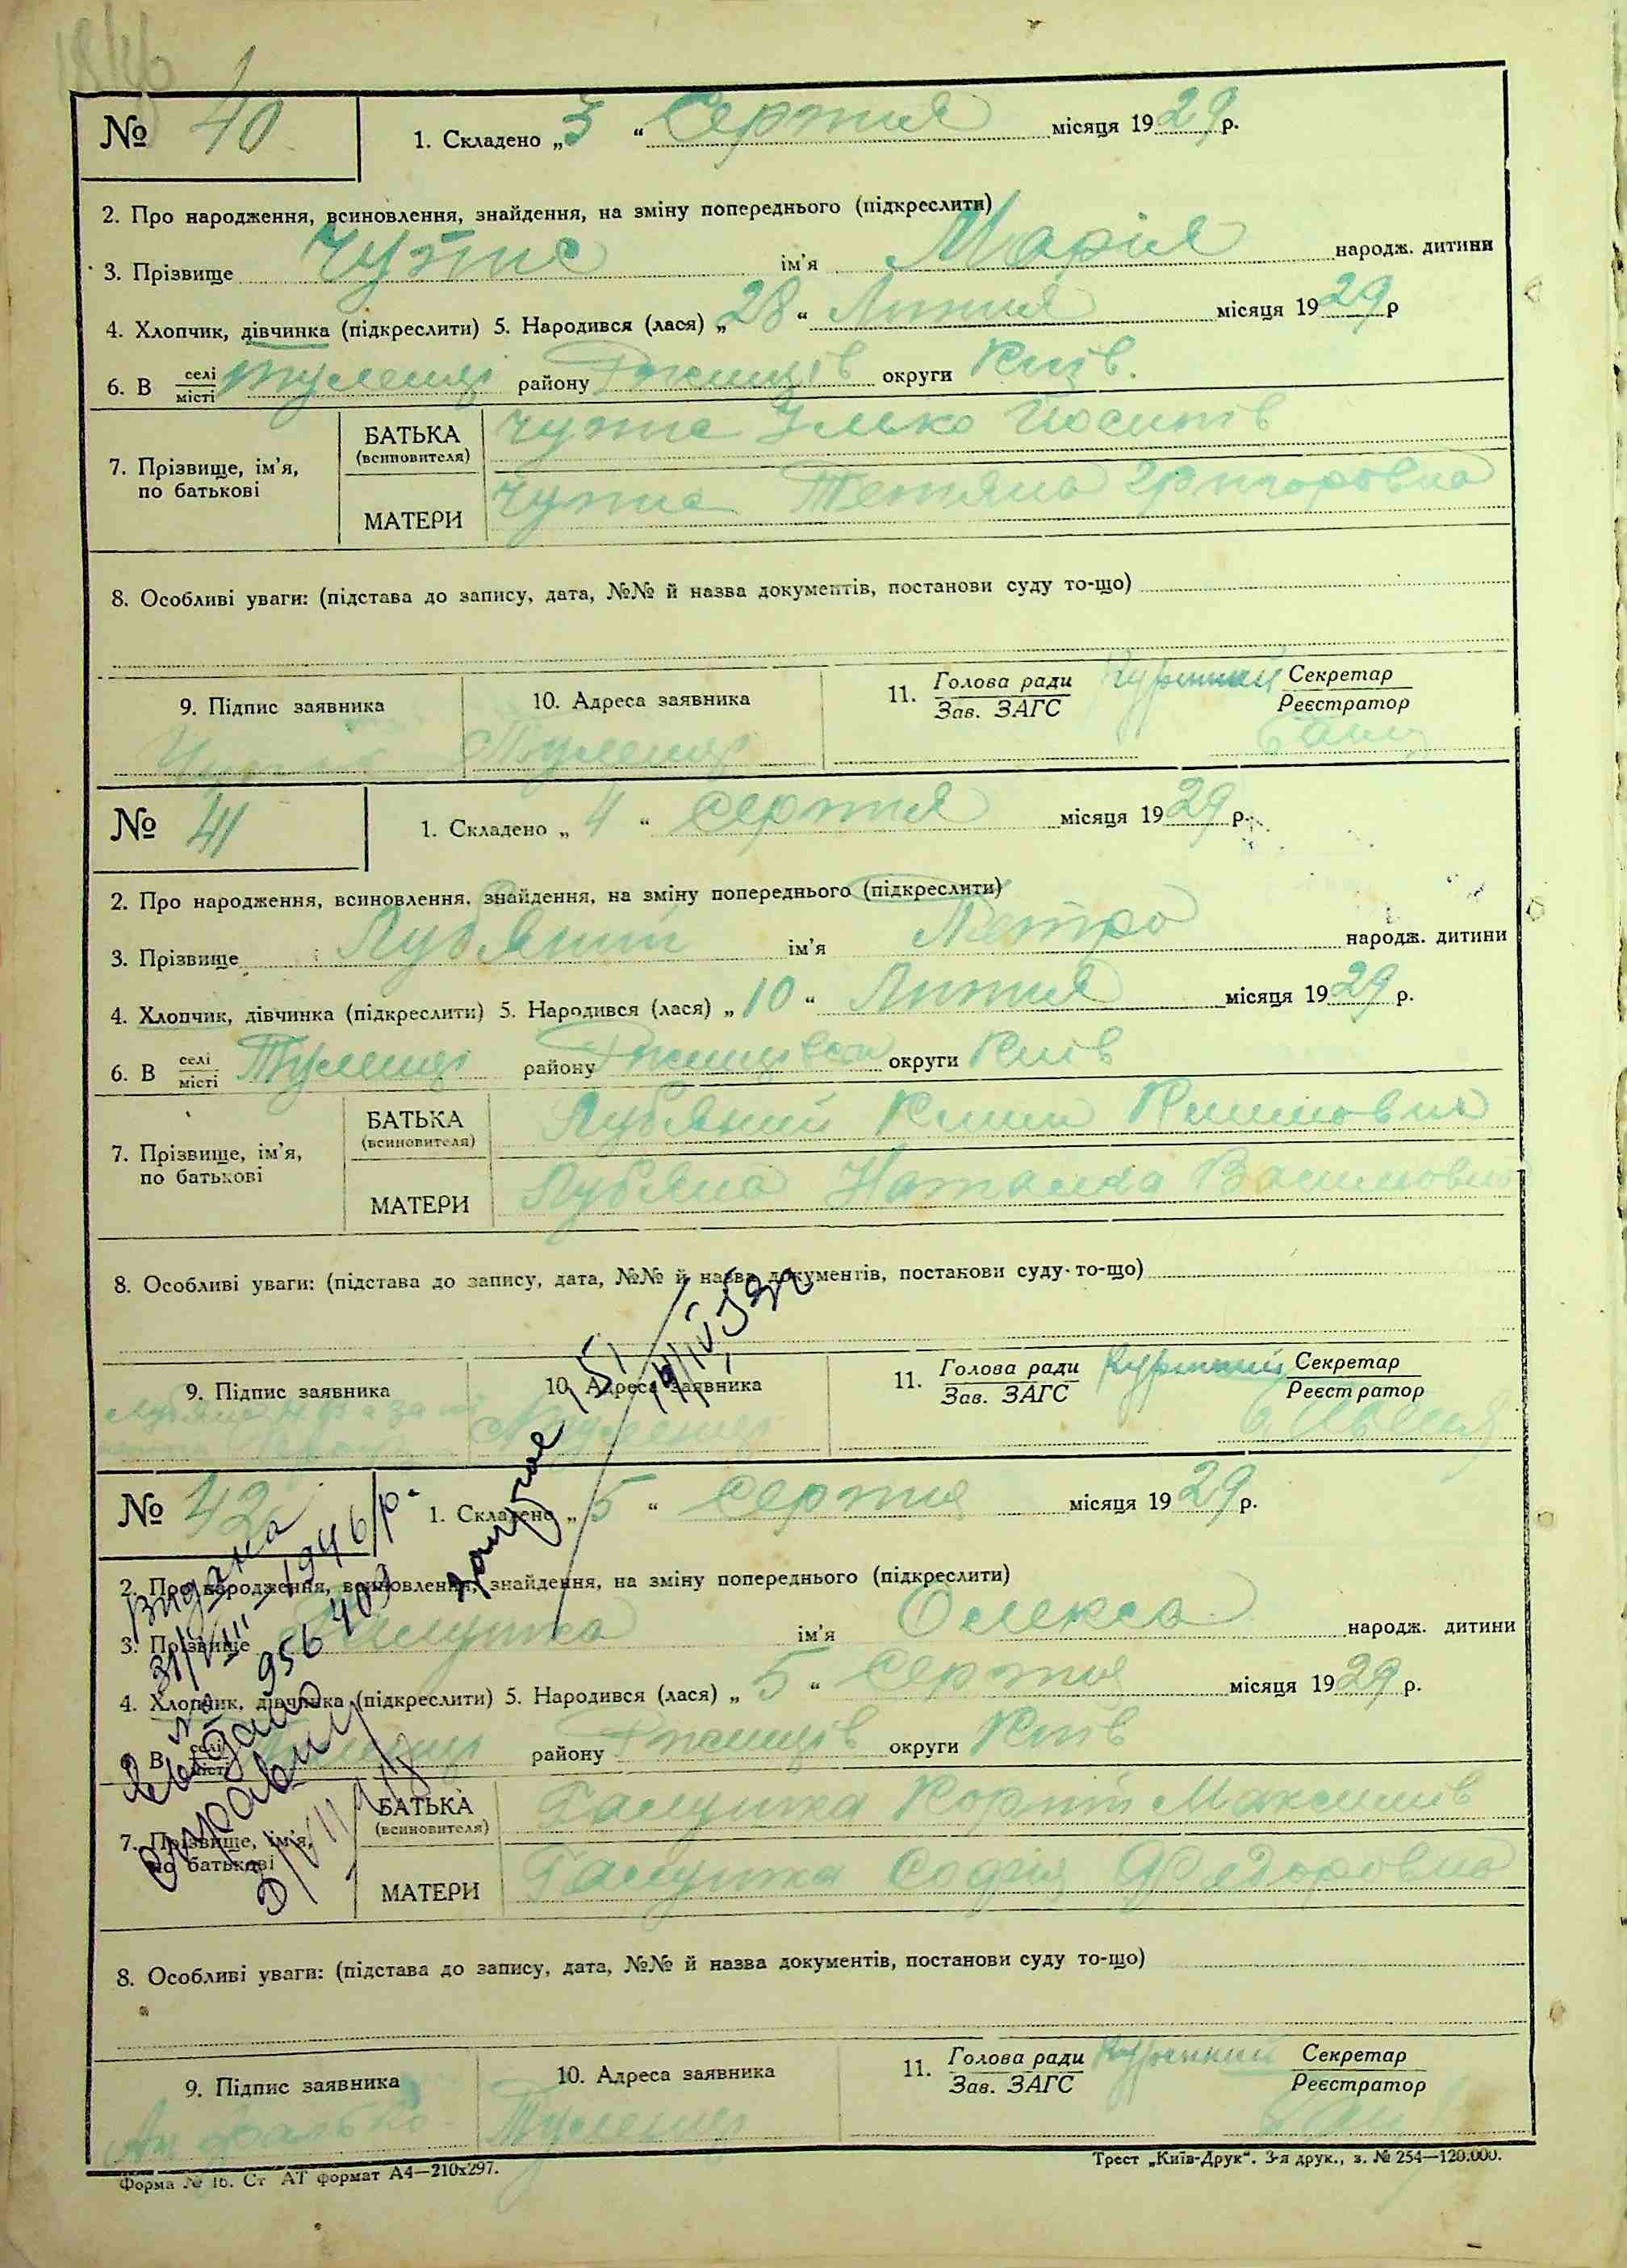 № 40
1. Складено „3“ Серпня місяця 1929 р.
2. Про народження, всиновлення, знайдення, на зміну попереднього (підкреслити)
3. Прізвище ім'я Марія народж. дитини
4. Хлопчик, дівчинка (підкреслити) 5. Народився (лася) „28“ Липня місяця 1929 р
6. В селі місті Туленці району Ржищів округи Київ.
7. Прізвище, ім'я, по батькові
БАТЬКА (всиновителя) Ілько Йосипів
МАТЕРИ Тетяна Григоровна
8. Особливі уваги: (підстава до запису, дата, №№ й назва документів, постанови суду то-що)
9. Підпис заявника
10. Адреса заявника
11. Голова ради Зав. ЗАГС
Секретар Реєстратор
Туленці
№ 41
1. Складено „4“ серпня місяця 1929 р.
2. Про народження, всиновлення, знайдення, на зміну попереднього (підкреслити)
3. Прізвище Лубяний ім'я Петро народж. дитини
4. Хлопчик, дівчинка (підкреслити) 5. Народився (лася) „10“ Липня місяця 1929 р.
6. В селі місті Туленці району округи Київ
7. Прізвище, ім'я, по батькові
БАТЬКА (всиновителя) Лубяний
МАТЕРИ Лубяна Наталка Василовна
8. Особливі уваги: (підстава до запису, дата, №№ й назва документів, постанови суду то-що)
9. Підпис заявника
10. Адреса заявника
11. Голова ради Зав. ЗАГС
Секретар Реєстратор
Туленці
№ 42
1. Складено „5“ серпня місяця 1929 р.
2. Про народження, всиновлення, знайдення, на зміну попереднього (підкреслити)
3. Прізвище Галушка ім'я Олекса народж. дитини
4. Хлопчик, дівчинка (підкреслити) 5. Народився (лася) „5“ Серпня місяця 1929 р.
6. В селі місті Туленці району Ржищів округи Київ
7. Прізвище, ім'я, по батькові
БАТЬКА (всиновителя) Галушка Корній Максимів
МАТЕРИ Галушка Софія Федоровна
8. Особливі уваги: (підстава до запису, дата, №№ й назва документів, постанови суду то-що)
9. Підпис заявника
10. Адреса заявника
11. Голова ради Зав. ЗАГС
Секретар Реєстратор
Туленці
Видана
31/VIII-1946 р.
№ 956409
Форма № 16. Ст АТ формат А4—210х297.
Трест „Київ-Друк“. 3-я друк., з. № 254—120.000.